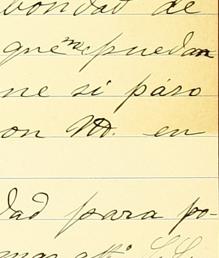 bondat de
que me puedan
ne si páso
on Vd. en
dad para po-